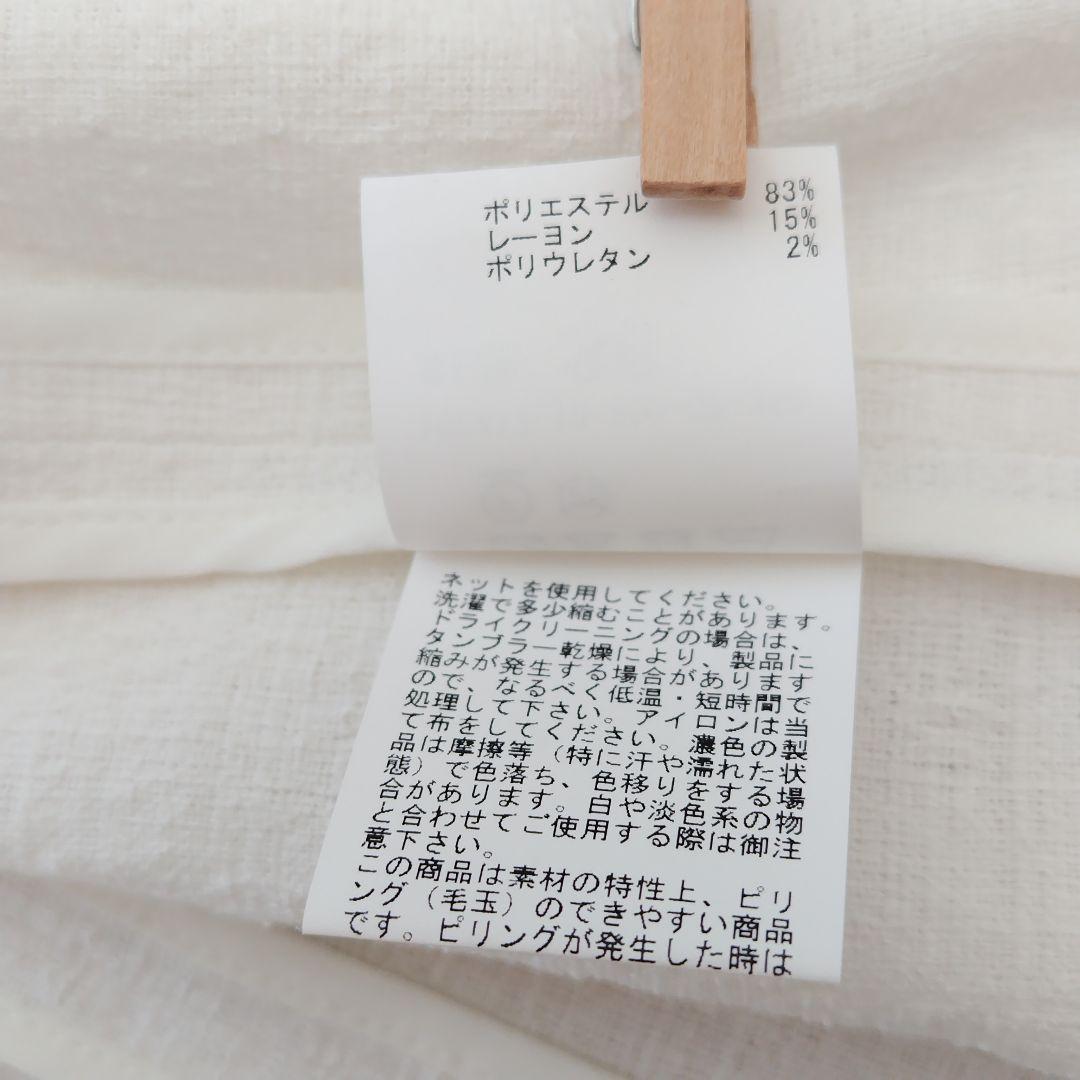 ポリエステル 83%
レーヨン 15%
ポリウレタン 2%
ネットを使用してください。
洗濯で多少縮むことがあります。
ドライクリーニングの場合は、
タンブラー乾燥により、製品に
縮みが発生する場合がありますで
ので、なるべく低温・短時間で
処理して下さい。アイロンは当
て布をしてください。濃色の製
品は摩擦等（特に汗や濡れた状
態）で色落ち、色移りをする場
合があります。白や淡色系の物
と合わせてご使用する際は御注
意下さい。
この商品は素材の特性上、ピリ
ング（毛玉）のできやすい商品
です。ピリングが発生した時は